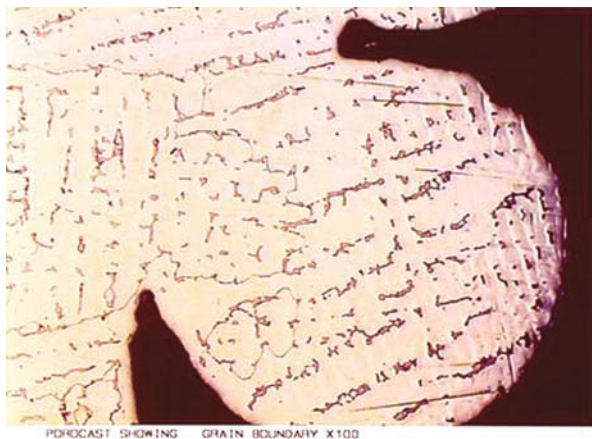 POROCAST SHOWING GRAIN BOUNDARY X100